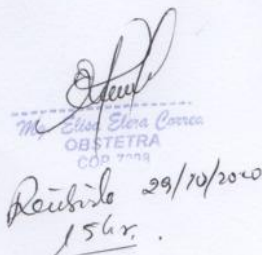 Mg. Elisa Elera Correa
OBSTETRA
COP
Recibido 29/10/2020
15 Hr.